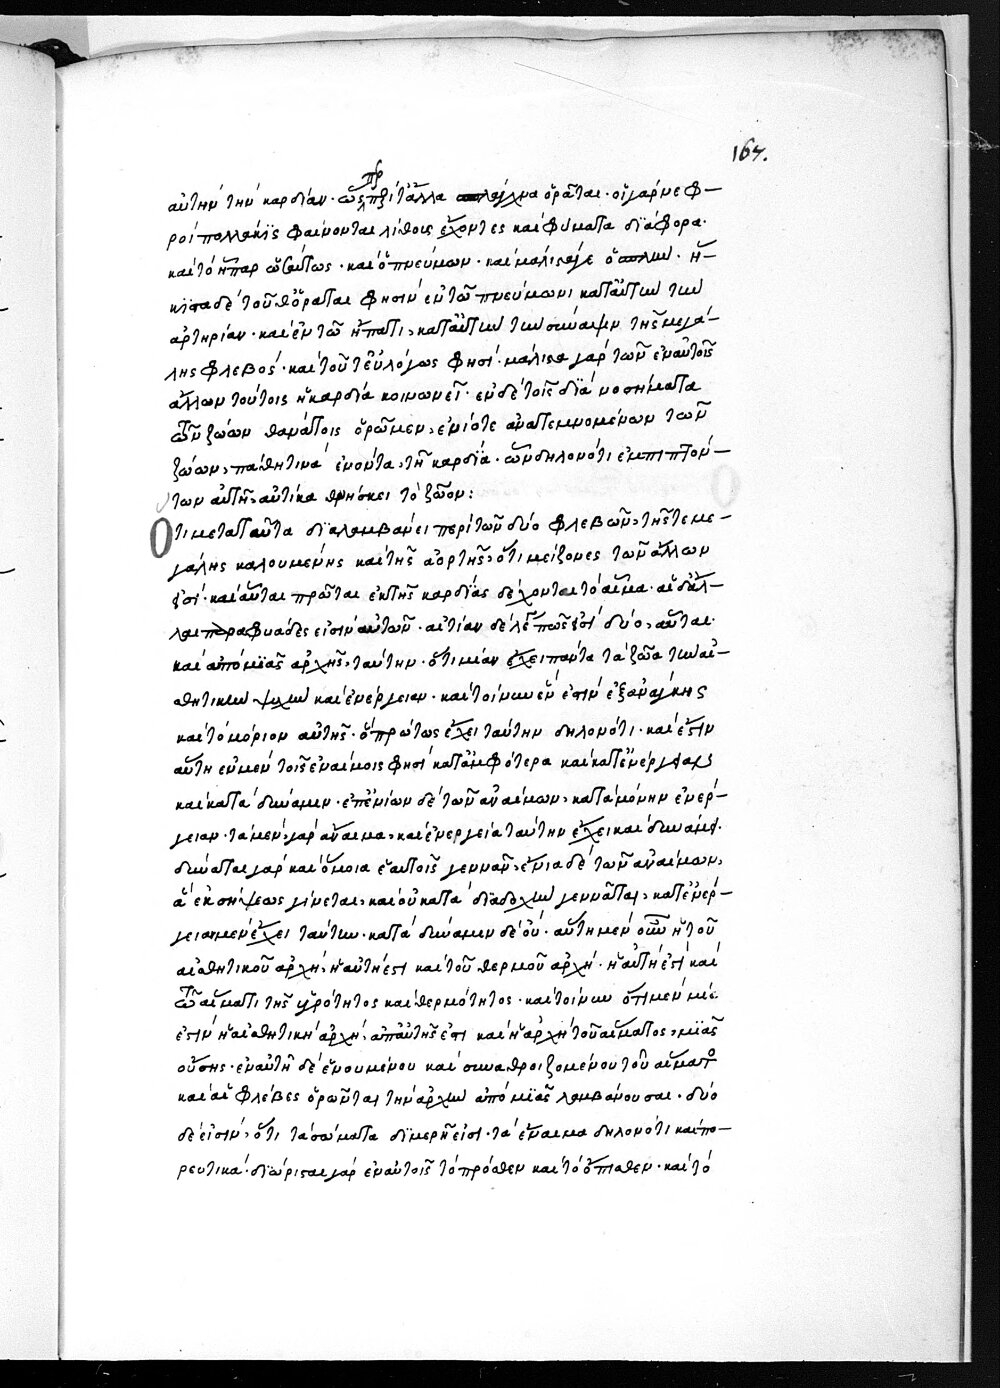 167.
αὐτὴν τὴν καρδίαν· ὥσπερ ἐπὶ τἄλλα σπλάγχνα ὁρᾶται· οἱ γὰρ νεφ–
ροὶ πολλάκις φαίνονται λίθους ἔχοντες καὶ φύματα διάφορα·
καὶ τὸ ἧπαρ ὡσαύτως· καὶ ὁ πνεύμων· καὶ μάλιστά γε ὁ σπλήν· ἥ–
κιστα δὲ τοῦθ' ὁρᾶται φησὶν ἐν τῶ πνεύμονι κατ' αὐτὴν τὴν
ἀρτηρίαν· καὶ ἐν τῶ ἥπατι, κατ' αὐτὴν τὴν σύναψιν τῆς μεγά–
λης φλεβός· καὶ τοῦτ' εὐλόγως φησί· μάλιστα γὰρ τῶν ἐν αὐτοῖς
ἄλλων τούτοις ἡ καρδία κοινωνεῖ· ἐν δὲ τοῖς διὰ νοσήματα
τῶν ζώων θανάτοις ὁρῶμεν, ἐνίοτε ἀνατεμνομένων τῶν
ζώων, παθητικὰ ἐνόντα, τῆ καρδία· ὧν δηλονότι ἐμπιπτόν–
των αὐτῆ, αὐτίκα θνήσκει τὸ ζῶον:
Ὅτι μετὰ ταῦτα διαλαμβάνει περὶ τῶν δύο φλεβῶν, τῆς τε με–
γάλης καλουμένης καὶ τῆς ἀορτῆς, ὅτι μείζονες τῶν ἄλλων
εἰσί· καὶ αὗται πρῶται ἐκ τῆς καρδίας δέχονται τὸ αἷμα· αἱ δ' ἄλ–
λαι παραφυάδες εἰσὶν αὐτῶν· αἰτίαν δὲ λέγει πῶς εἰσὶ δύο, αὗται
καὶ ἀπὸ μιᾶς ἀρχῆς, ταύτην· ὅτι μίαν ἔχει πάντα τὰ ζῶα τὴν αἰ–
σθητικὴν ψυχὴν καὶ ἐνέργειαν· καὶ τοίνυν ἕν ἐστιν ἐξανάγκης
καὶ τὸ μόριον αὐτῆς· ὃ πρώτως ἔχει ταύτην δηλονότι· καὶ ἔστιν
αὕτη ἐν μὲν τοῖς ἐναίμοις φησὶ κατ' ἀμφότερα καὶ κατ' ἐνέργειαν
καὶ κατὰ δύναμιν· ἐπ' ἐνίων δὲ τῶν ἀναίμων, κατὰ μόνην ἐνέρ–
γειαν· τὰ μὲν γὰρ ἄναιμα, καὶ ἐνεργεία ταύτην ἔχει καὶ δυνάμει·
δύναται γὰρ καὶ ὅμοια ἑαυτοῖς γεννᾶν, ἔνια δὲ τῶν ἀναίμων,
ἃ ἐκ σήψεως γίνεται, καὶ οὐ κατὰ διαδοχὴν γεννᾶται, κατ' ἐνέρ–
γειαν μὲν ἔχει ταύτην· κατὰ δύναμιν δὲ οὔ· αὕτη μὲν οὖν ἡ τοῦ
αἰσθητικοῦ ἀρχή, ἡ αὐτή ἐστι καὶ τοῦ θερμοῦ ἀρχή· ἡ αὐτή ἐστὶ καὶ
τῶ αἵματι τῆς ὑγρότητος καὶ θερμότητος· καὶ τοίνυν ὅτι μὲν μία
ἐστὶν ἡ αἰσθητικὴ ἀρχή, ἀπ' αὐτῆς ἐστι καὶ ἡ ἀρχὴ τοῦ αἵματος, μιᾶς
οὔσης· ἐν αὐτῆ δὲ ἑνουμένου καὶ συναθροιζομένου τοῦ αἵματος
καὶ αἱ φλέβες ὁρῶνται τὴν ἀρχὴν ἀπὸ μιᾶς λαμβάνουσαι· δύο
δέ εἰσιν, ὅτι τὰ σώματα διμερῆ εἰσι· τὰ ἔναιμα δηλονότι καὶ πο–
ρευτικά· διώρισται γὰρ ἐν αὐτοῖς τὸ πρόσθεν καὶ τὸ ὄπισθεν· καὶ τὸ